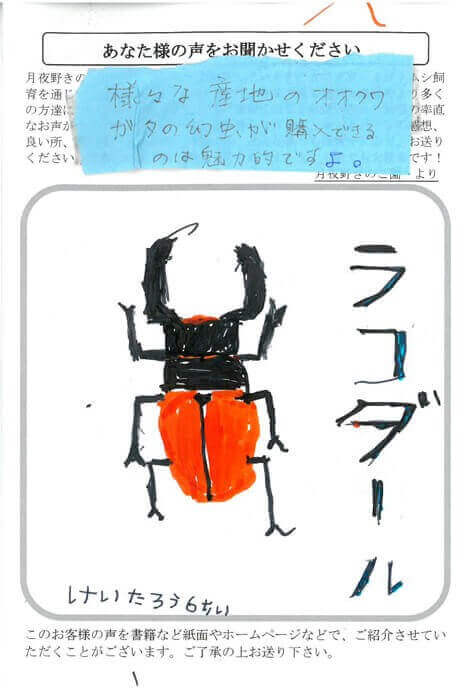 あなた様の声をお聞かせください
月夜野きの ムシ飼
育を通じ り多く
の方達に の率直
なお声が 感想、
良い所、 お送り
ください です！
様々な産地のオオクワ
ガタの幼虫が購入できる
のは魅力的ですよ。
月夜野きのこ園 より
ラコダール
けいたろう6ちい
このお客様の声を書籍など紙面やホームページなどで、ご紹介させてい
ただくことがございます。ご了承の上お送り下さい。